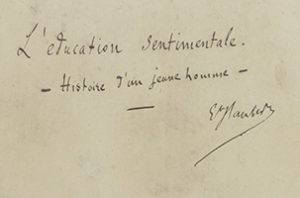 L'éducation sentimentale.
— Histoire d'un jeune homme —
Gve Flaubert